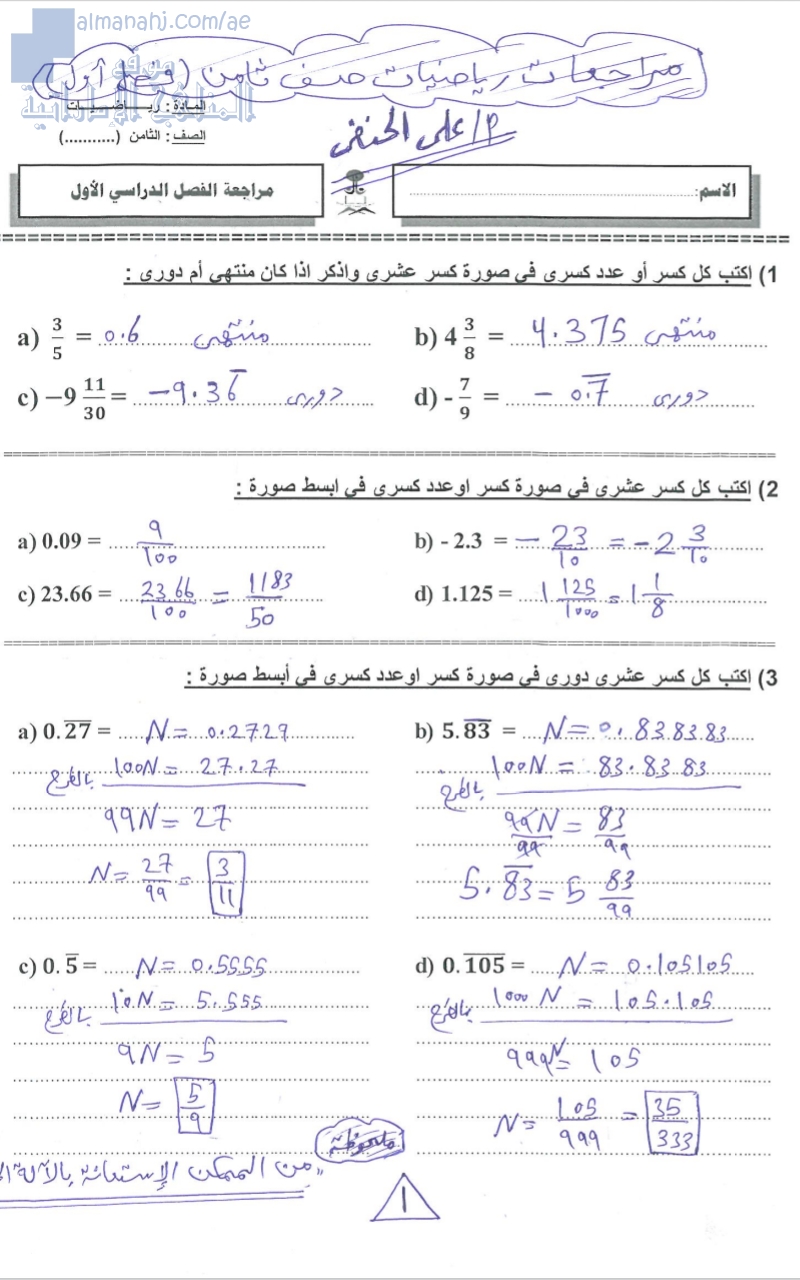 almanahj.com/ae
موقع
المناهج الإماراتية
مراجعات رياضيات صف ثامن (فصل أول)
المادة : ريـــاضـــيـــات
الصف : الثامن (...........)
م/ على الحنفى
مراجعة الفصل الدراسي الأول
الاسم:
1) اكتب كل كسر أو عدد كسرى في صورة كسر عشرى واذكر اذا كان منتهى أم دورى :
a) 3/5 = 0.6 منتهى
b) 4 3/8 = 4.375 منتهى
c) −9 11/30 = −9.36̅ دورى
d) - 7/9 = − 0.7̅ دورى
2) اكتب كل كسر عشرى في صورة كسر اوعدد كسرى في ابسط صورة :
a) 0.09 = 9/100
b) - 2.3 = − 23/10 = −2 3/10
c) 23.66 = 2366/100 = 1183/50
d) 1.125 = 1 125/1000 = 1 1/8
3) اكتب كل كسر عشرى دورى في صورة كسر اوعدد كسرى في أبسط صورة :
a) 0.2̅7̅ = N = 0.2727
100N = 27.27
بالطرح
99N = 27
N = 27/99 = 3/11
b) 5.8̅3̅ = N = 0.838383
100N = 83.8383
بالطرح
99N/99 = 83/99
5.8̅3̅ = 5 83/99
c) 0.5̅ = N = 0.5555
10N = 5.555
بالطرح
9N = 5
N = 5/9
d) 0.1̅0̅5̅ = N = 0.105105
1000 N = 105.105
بالطرح
999N = 105
N = 105/999 = 35/333
ملحوظة
من الممكن الإستعانة بالآلة
1